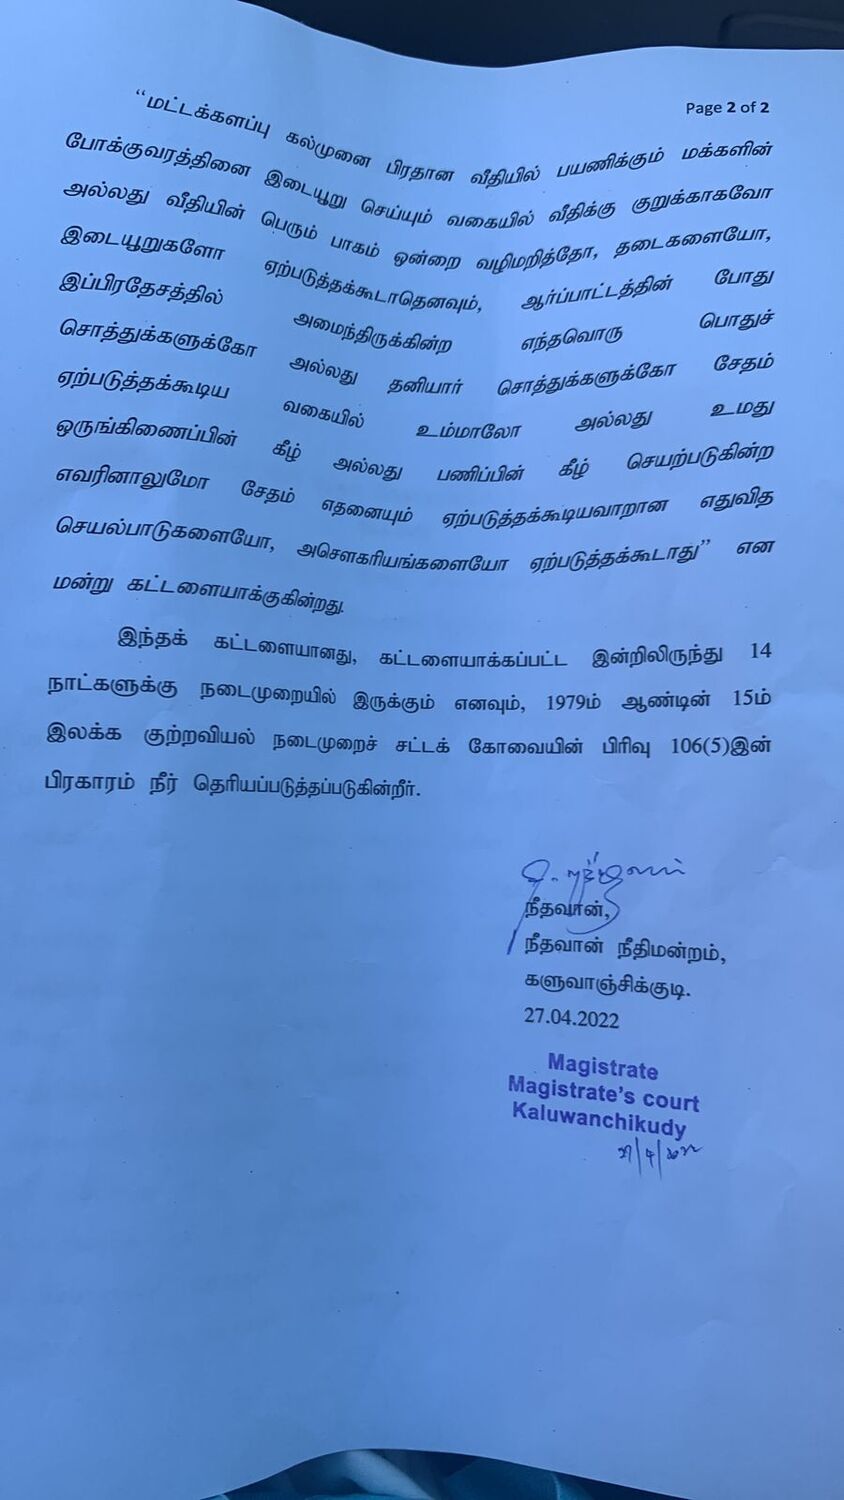 Page 2 of 2
“மட்டக்களப்பு கல்முனை பிரதான வீதியில் பயணிக்கும் மக்களின்
போக்குவரத்தினை இடையூறு செய்யும் வகையில் வீதிக்கு குறுக்காகவோ
அல்லது வீதியின் பெரும் பாகம் ஒன்றை வழிமறித்தோ, தடைகளையோ,
இடையூறுகளோ ஏற்படுத்தக்கூடாதெனவும், ஆர்ப்பாட்டத்தின் போது
இப்பிரதேசத்தில் அமைந்திருக்கின்ற எந்தவொரு பொதுச்
சொத்துக்களுக்கோ அல்லது தனியார் சொத்துக்களுக்கோ சேதம்
ஏற்படுத்தக்கூடிய வகையில் உம்மாலோ அல்லது உமது
ஒருங்கிணைப்பின் கீழ் அல்லது பணிப்பின் கீழ் செயற்படுகின்ற
எவரினாலுமோ சேதம் எதனையும் ஏற்படுத்தக்கூடியவாறான எதுவித
செயல்பாடுகளையோ, அசௌகரியங்களையோ ஏற்படுத்தக்கூடாது” என
மன்று கட்டளையாக்குகின்றது.
இந்தக் கட்டளையானது, கட்டளையாக்கப்பட்ட இன்றிலிருந்து 14
நாட்களுக்கு நடைமுறையில் இருக்கும் எனவும், 1979ம் ஆண்டின் 15ம்
இலக்க குற்றவியல் நடைமுறைச் சட்டக் கோவையின் பிரிவு 106(5)இன்
பிரகாரம் நீர் தெரியப்படுத்தப்படுகின்றீர்.
நீதவான்,
நீதவான் நீதிமன்றம்,
களுவாஞ்சிக்குடி.
27.04.2022
Magistrate
Magistrate's court
Kaluwanchikudy